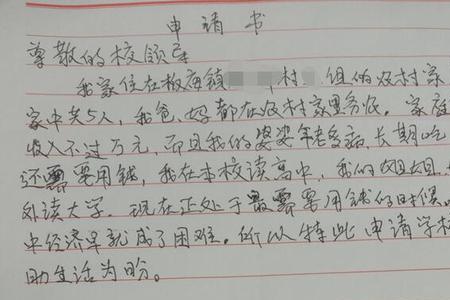 申请书
尊敬的校领导
我家住在板庙镇 村 组的农村家
家中共5人,我爸、妈都在农村家里务农。家庭
收入不过万元,而且我的婆婆年老多病,长期吃
还需要用钱,我在本校读高中,我的姐姐
外读大学。现在正处于最需要用钱的时候
中经济早就成了困难。所以特此申请学校
助生活为盼。